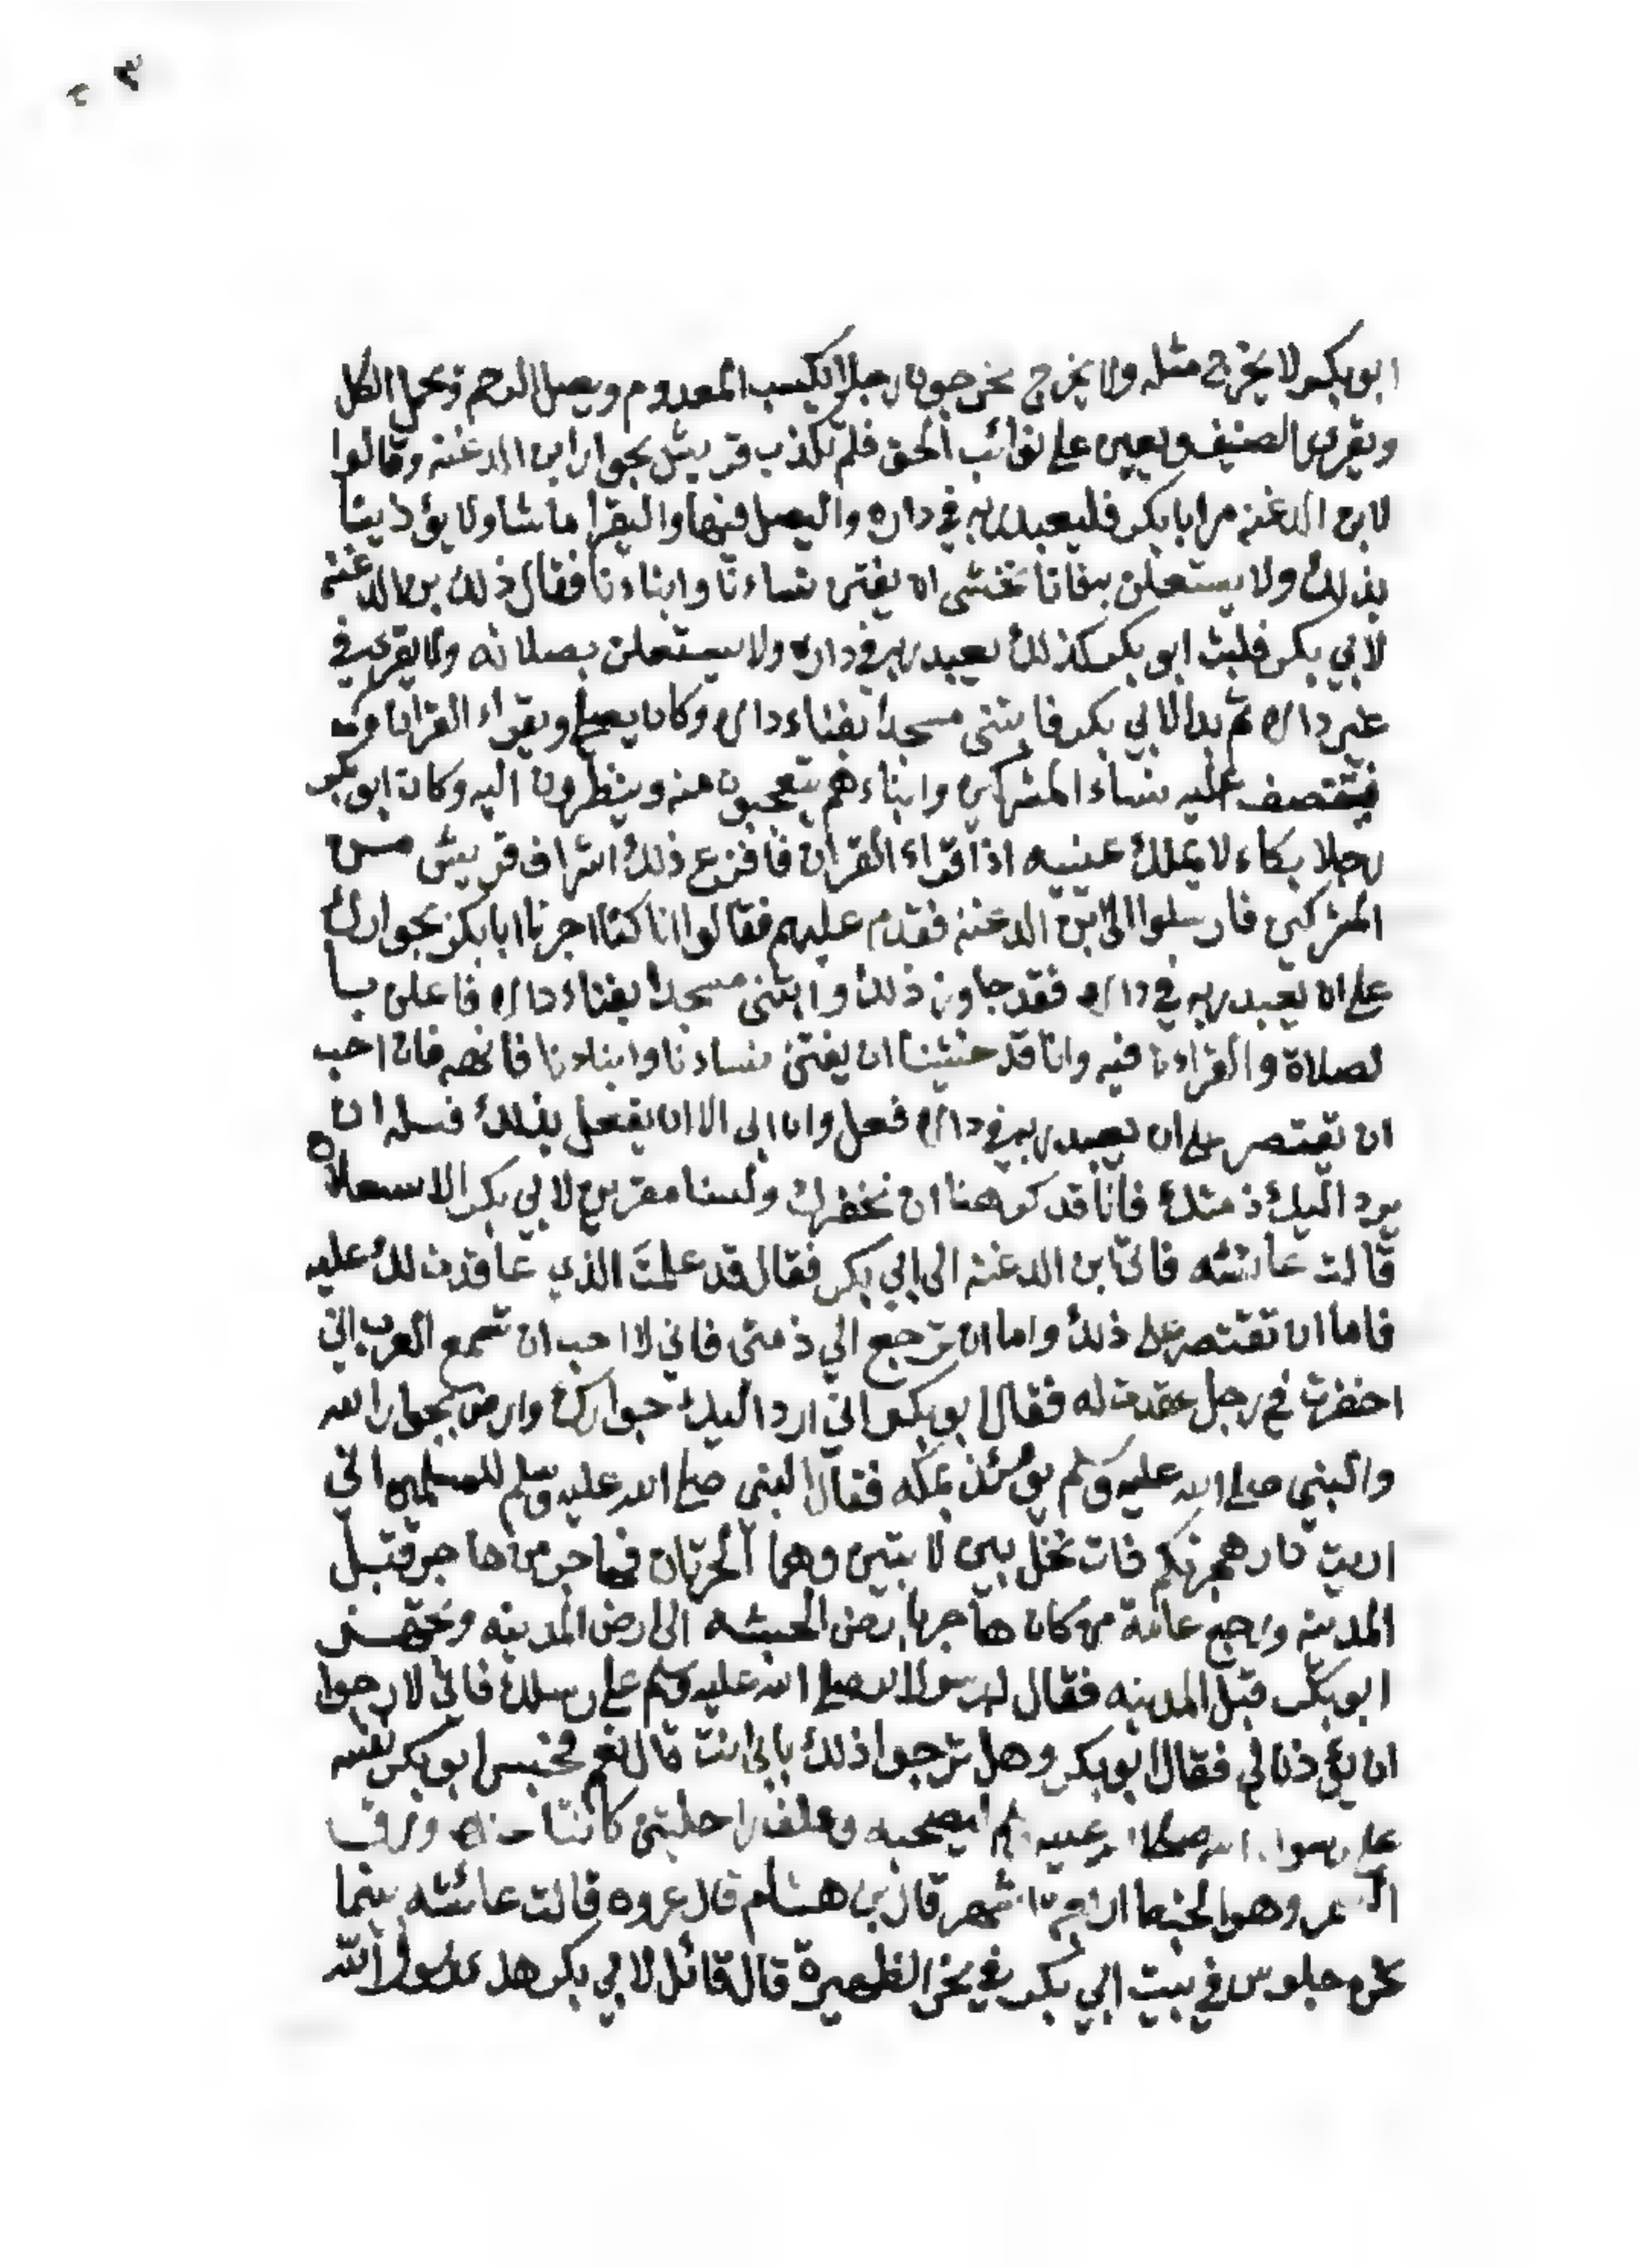 ابو بكر لا يخرج مثله ولا يخرج تخرجون رجلا يكسب المعدوم ويصل الرحم وتحمل الكل
ويقري الضيف ويعين على نوائب الحق فلم تكذب قريش بجوار ابن الدغنه وقالوا
لابن الدغنه مر ابا بكر فليعبد ربه في داره واليصل فيها واليقرا ما شا ولا يؤذينا
بذلك ولا يستعلن به فانا نخشى ان يفتن نساءنا وابناءنا فقال ذلك بن الدغنه
لابي بكر فلبث ابو بكر كذلك يعبد ربه في داره ولا يستعلن بصلاته ولا يقرء في
غير داره ثم بدا لابي بكر فابتنى مسجدا بفناء داره وكان يصلي ويقراء القران
فيتقصف عليه نساء المشركين وابناءهم يتعجبون منه وينظرون اليه وكان ابو بكر
رجلا بكاء لا يملك عينيه اذا قراء القران فافزع ذلك اشراف قريش من
المشركين فارسلوا الى ابن الدغنه فقدم عليهم فقالوا انا كنا اجرنا ابا بكر بجوارك
على ان يعبد ربه في داره فقد جاوز ذلك وابتنى مسجدا بفناء داره فاعلن با
لصلاة والقراءة فيه وانا قد خشينا ان يفتن نساءنا وابناءنا فانهه فان احب
ان يقتصر على ان يعبد ربه في داره فعل وان ابى الا ان يفعل بذلك فسله ان
يرد اليك ذمتك فانا قد كرهنا ان نخفرك ولسنا مقرين لابي بكر الاستعلان
قالت عائشه فاتى ابن الدغنه الى ابي بكر فقال قد علمت الذي عاقدت لك عليه
فاما ان تقتصر على ذلك واما ان ترجع الي ذمتي فاني لا احب ان تسمع العرب اني
اخفرت في رجل عقدت له فقال ابو بكر اني ارد اليك جوارك وارضى بجوار الله
والنبي صلى الله عليه وسلم يومئذ بمكه فقال النبي صلى الله عليه وسلم للمسلمين اني
اريت دار هجرتكم ذات نخل بين لابتين وهما الحرتان فهاجر من هاجر قبل
المدينه ورجع عامة من كان هاجر بارض الحبشه الى ارض المدينه وتجهز
ابو بكر قبل المدينه فقال له رسول الله صلى الله عليه وسلم على رسلك فاني لارجوا
ان يؤذن لي فقال ابو بكر وهل ترجوا ذلك بابي انت قال نعم فحبس ابو بكر نفسه
على رسول الله ليصحبه وعلف راحلتين كانتا عنده ورق
وهو الخبط اربعة اشهر قال بن هشام قال عروه قالت عائشه بينما
نحن جلوس في بيت ابي بكر في نحر الظهيرة قال قائل لابي بكر هذا رسول الله